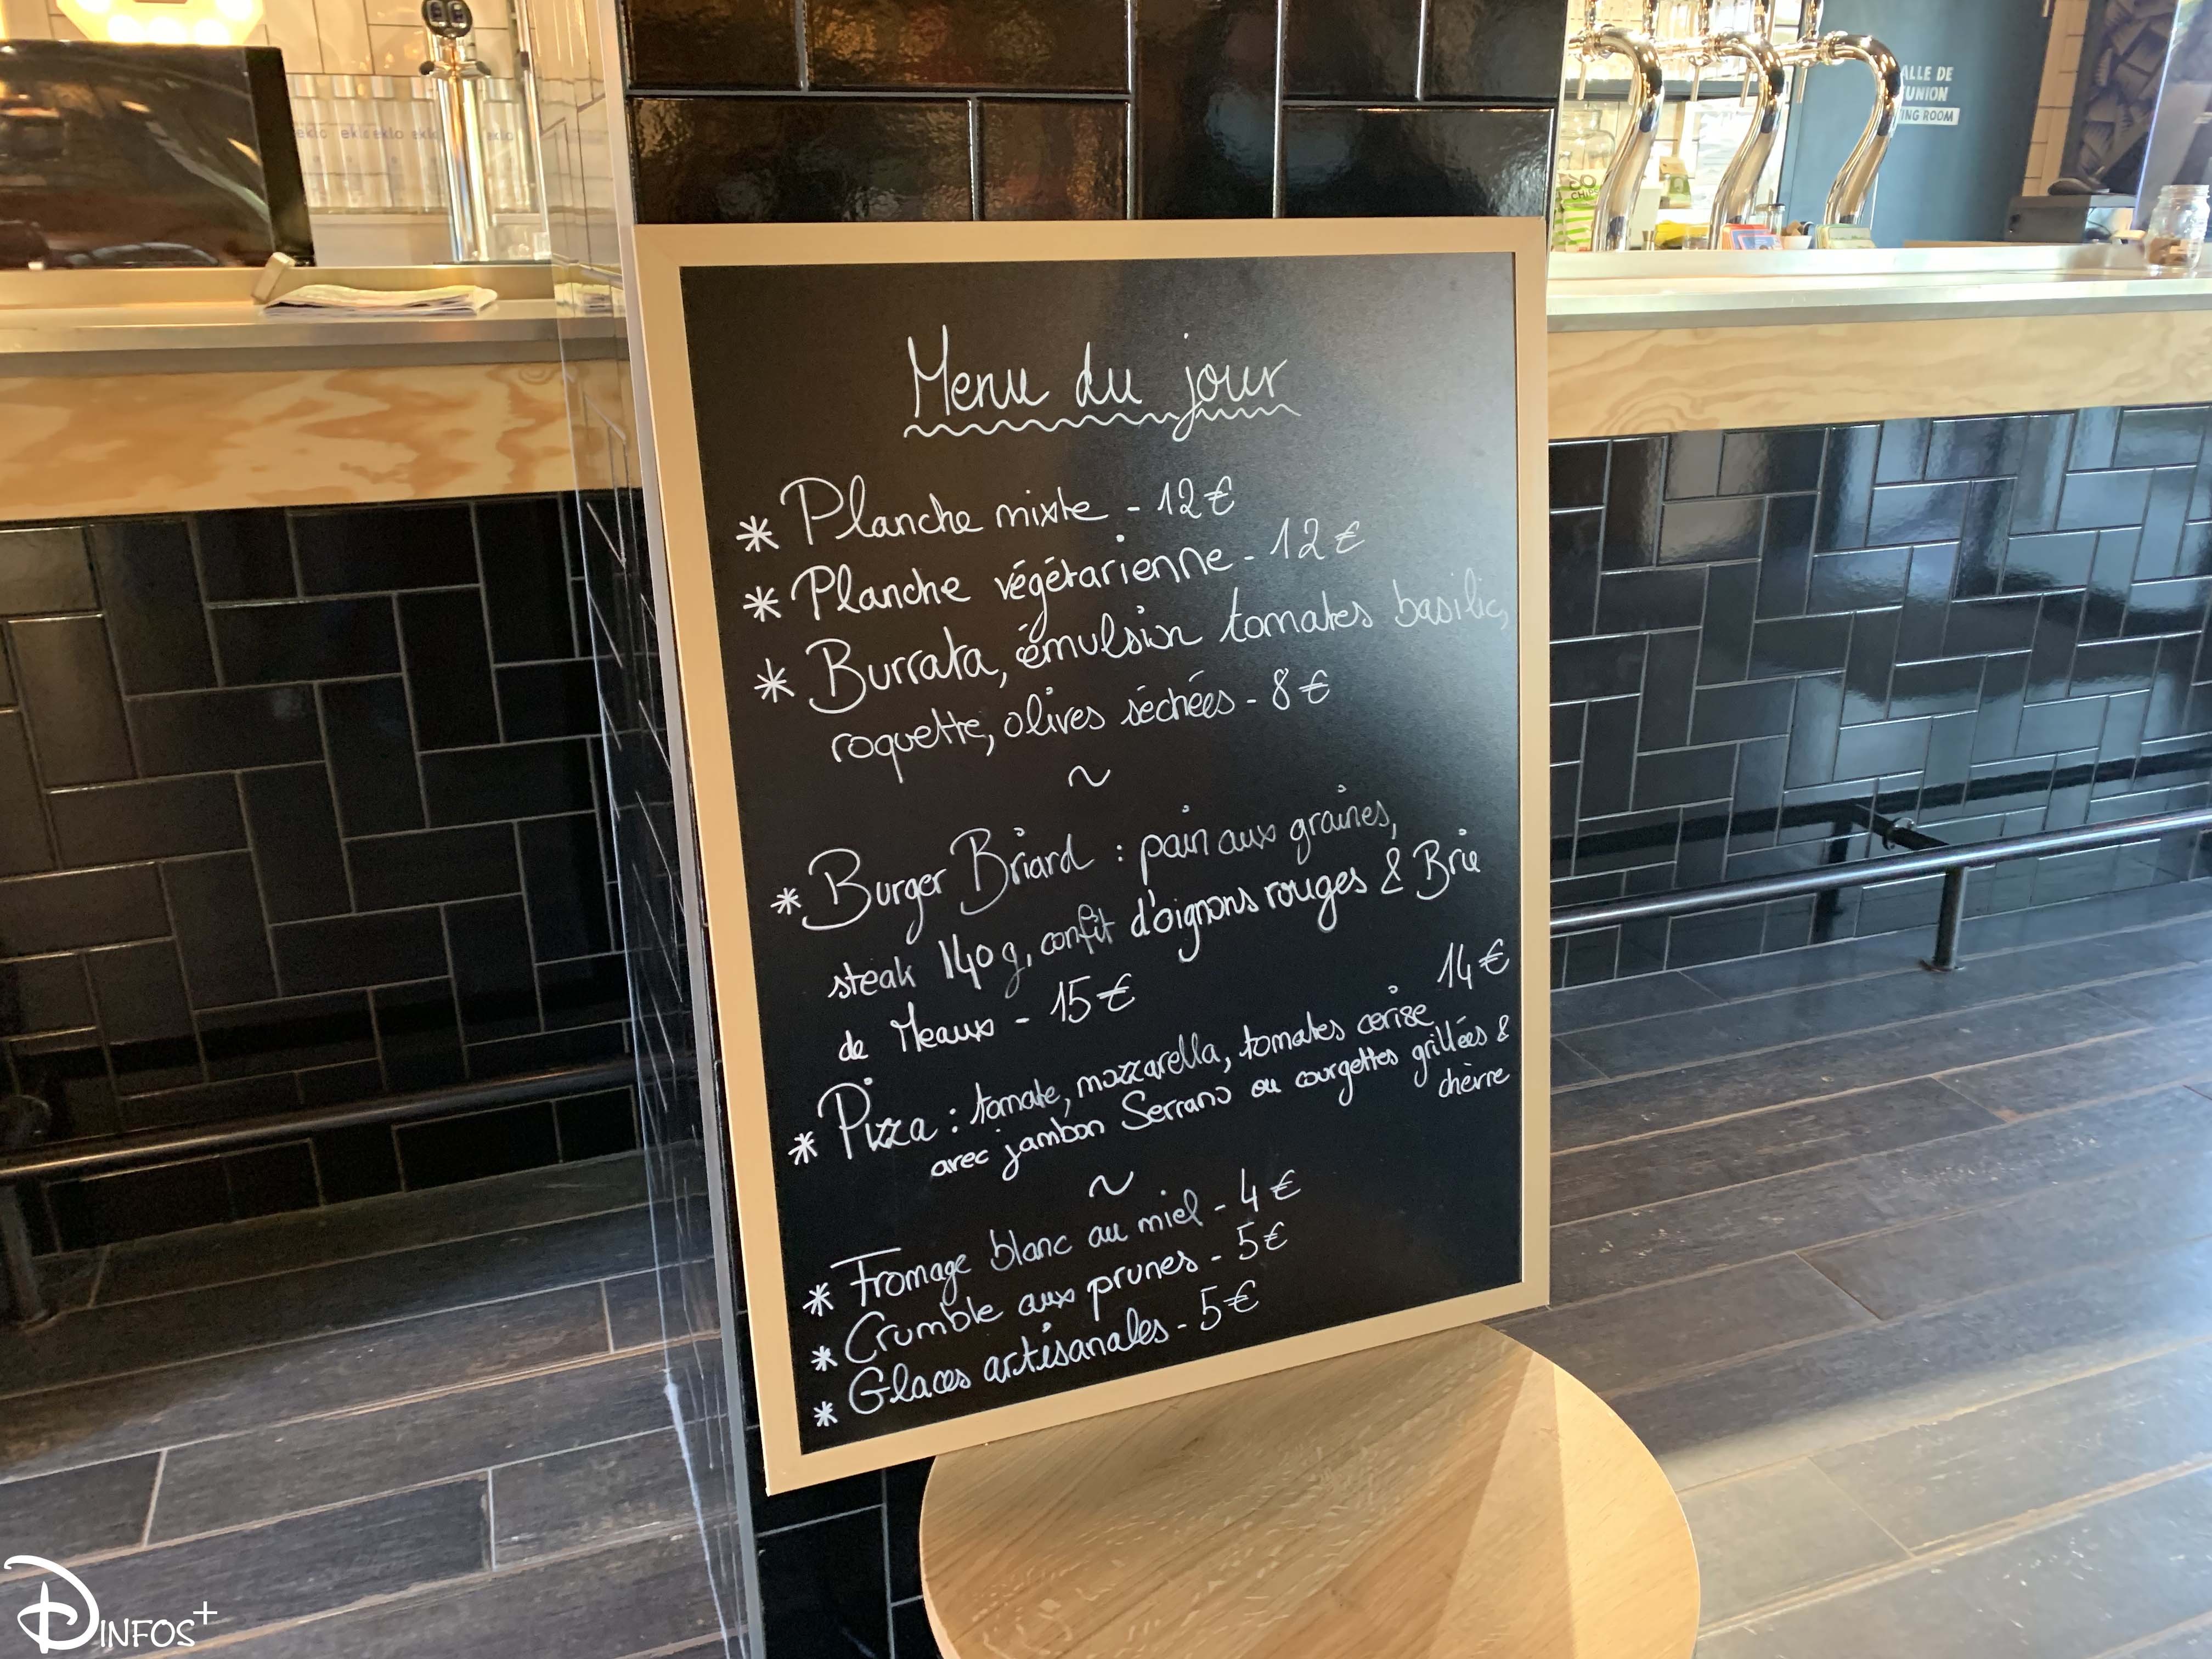 eklo eklo eklo eklo eklo
ALLE DE
UNION
ING ROOM
CHIPS
Menu du jour
* Planche mixte - 12€
* Planche végétarienne - 12€
* Burrata, émulsion tomates basilic,
roquette, olives séchées - 8€
~
* Burger Briard : pain aux graines,
steak 140g, confit d'oignons rouges & Brie
de Meaux - 15€
14€
* Pizza : tomate, mozzarella, tomates cerise
avec jambon Serrano ou courgettes grillées &
chèvre
~
* Fromage blanc au miel - 4€
* Crumble aux prunes - 5€
* Glaces artisanales - 5€
DINFOS+